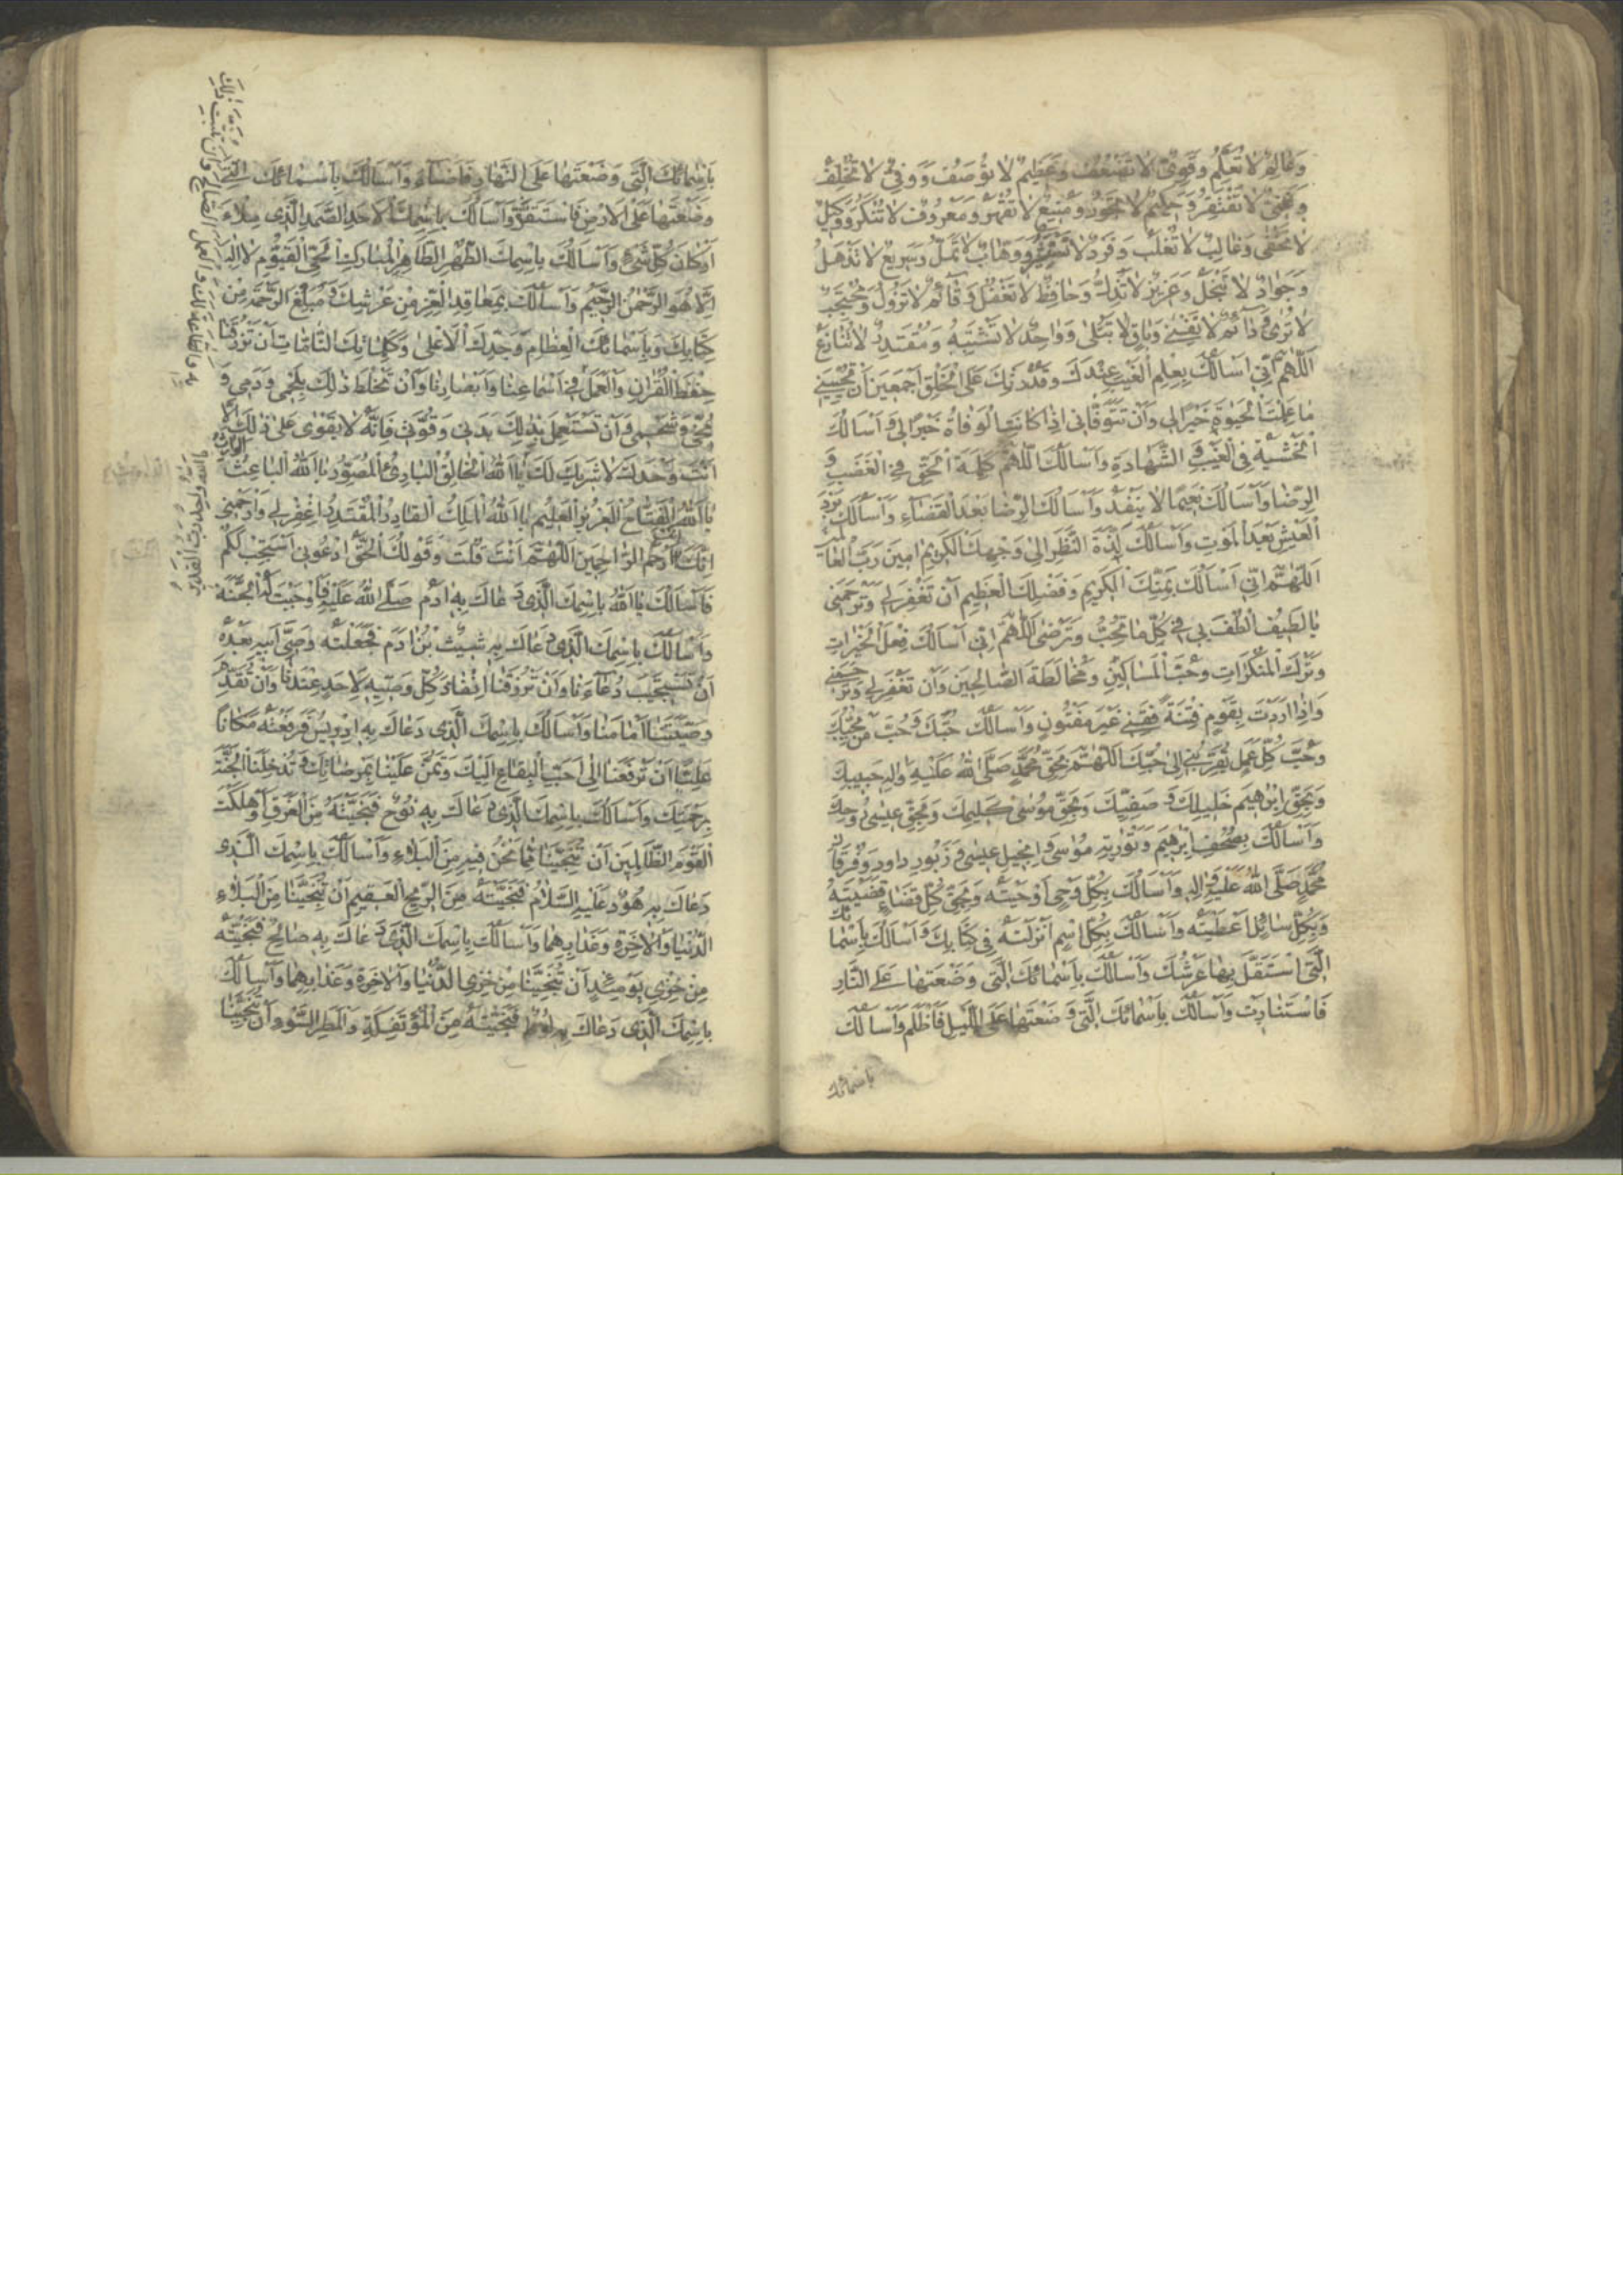 وَعَالِمٌ لَا تُعَلَّمُ وَقَوِيٌّ لَا تَضْعُفُ وَعَظِيمٌ لَا تُوصَفُ وَوَفِيٌّ لَا تُخْلِفُ
وَغَنِيٌّ لَا تَفْتَقِرُ وَحَلِيمٌ لَا تَجُورُ وَمَنِيعٌ لَا تُقْهَرُ وَمَعْرُوفٌ لَا تُنْكَرُ وَوَكِيلٌ
لَا تَخْفَى وَغَالِبٌ لَا تُغْلَبُ وَفَرْدٌ لَا وَوَهَّابٌ لَا تَمَلُّ وَسَرِيعٌ لَا تَذْهَلُ
وَجَوَادٌ لَا تَبْخَلُ وَعَزِيزٌ لَا تُذَلُّ وَحَافِظٌ لَا تَغْفُلُ وَقَائِمٌ لَا تَزُولُ وَمُحْتَجِبٌ
لَا تُرَى وَدَائِمٌ لَا تَفْنَى وَبَاقٍ لَا تَبْلَى وَوَاحِدٌ لَا تَشْتَبِهُ وَمُقْتَدِرٌ لَا تُنَازَعُ
اَللّٰهُمَّ إِنِّي أَسْأَلُكَ بِعِلْمِ الْغَيْبِ عِنْدَكَ وَقُدْرَتِكَ عَلَى الْخَلْقِ أَجْمَعِينَ أَنْ تُحْيِيَنِي
مَا عَلِمْتَ الْحَيٰوةَ خَيْرًا لِي وَأَنْ تَتَوَفَّانِي إِذَا كَانَتِ الْوَفَاةُ خَيْرًا لِي وَأَسْأَلُكَ
الْخَشْيَةَ فِي الْغَيْبِ وَالشَّهَادَةِ وَأَسْأَلُكَ اللّٰهُمَّ كَلِمَةَ الْحَقِّ فِي الْغَضَبِ وَ
الرِّضَا وَأَسْأَلُكَ نَعِيمًا لَا يَنْفَدُ وَأَسْأَلُكَ الرِّضَا بَعْدَ الْقَضَاءِ وَأَسْأَلُكَ بَرْدَ
الْعَيْشِ بَعْدَ الْمَوْتِ وَأَسْأَلُكَ لَذَّةَ النَّظَرِ إِلَى وَجْهِكَ الْكَرِيمِ آمِينَ رَبَّ الْعَالَمِينَ
اَللّٰهُمَّ إِنِّي أَسْأَلُكَ بِمَنِّكَ الْكَرِيمِ وَفَضْلِكَ الْعَظِيمِ أَنْ تَغْفِرَ لِي وَتَرْحَمَنِي
يَا لَطِيفُ الْطُفْ بِي فِي كُلِّ مَا تُحِبُّ وَتَرْضَى اللّٰهُمَّ إِنِّي أَسْأَلُكَ فِعْلَ الْخَيْرَاتِ
وَتَرْكَ الْمُنْكَرَاتِ وَحُبَّ الْمَسَاكِينِ وَمُخَالَطَةَ الصَّالِحِينَ وَأَنْ تَغْفِرَ لِي وَتَرْحَمَنِي
وَإِذَا أَرَدْتَ بِقَوْمٍ فِتْنَةً فَقِنِي غَيْرَ مَفْتُونٍ وَأَسْأَلُكَ حُبَّكَ وَحُبَّ مَنْ يُحِبُّكَ
وَحُبَّ كُلِّ عَمَلٍ يُقَرِّبُنِي إِلَى حُبِّكَ اللّٰهُمَّ بِحَقِّ مُحَمَّدٍ صَلَّى اللهُ عَلَيْهِ وَآلِهِ حَبِيبِكَ
وَبِحَقِّ إِبْرٰهِيمَ خَلِيلِكَ وَصَفِيِّكَ وَبِحَقِّ مُوسَى كَلِيمِكَ وَبِحَقِّ عِيسَى رُوحِكَ
وَأَسْأَلُكَ بِصُحُفِ إِبْرٰهِيمَ وَتَوْرٰيةِ مُوسَى وَإِنْجِيلِ عِيسَى وَزَبُورِ دَاوُدَ وَفُرْقَانِ
مُحَمَّدٍ صَلَّى اللهُ عَلَيْهِ وَآلِهِ وَأَسْأَلُكَ بِكُلِّ وَحْيٍ أَوْحَيْتَهُ وَبِحَقِّ كُلِّ قَضَاءٍ قَضَيْتَهُ
وَبِكُلِّ سَائِلٍ أَعْطَيْتَهُ وَأَسْأَلُكَ بِكُلِّ اسْمٍ أَنْزَلْتَهُ فِي كِتَابِكَ وَأَسْأَلُكَ بِأَسْمَائِكَ
الَّتِي اسْتَقَلَّ بِهَا عَرْشُكَ وَأَسْأَلُكَ بِأَسْمَائِكَ الَّتِي وَضَعْتَهَا عَلَى النَّارِ
فَاسْتَنَارَتْ وَأَسْأَلُكَ بِأَسْمَائِكَ الَّتِي وَضَعْتَهَا عَلَى اللَّيْلِ فَأَظْلَمَ وَأَسْأَلُكَ
بِأَسْمَائِكَ
بِأَسْمَائِكَ الَّتِي وَضَعْتَهَا عَلَى النَّهَارِ فَأَضَاءَ وَأَسْأَلُكَ بِأَسْمَائِكَ الَّتِي
وَضَعْتَهَا عَلَى الْأَرْضِ فَاسْتَقَرَّتْ وَأَسْأَلُكَ بِاسْمِكَ الْأَحَدِ الصَّمَدِ الَّذِي مِلَاءَ
أَرْكَانَ كُلِّ شَيْءٍ وَأَسْأَلُكَ بِاسْمِكَ الطُّهْرِ الطَّاهِرِ الْمُبَارَكِ الْحَيِّ الْقَيُّومِ لَا إِلٰهَ
إِلَّا هُوَ الرَّحْمٰنُ الرَّحِيمُ وَأَسْأَلُكَ بِمَعَاقِدِ الْعِزِّ مِنْ عَرْشِكَ وَمَبْلَغِ الرَّحْمَةِ مِنْ
كِتَابِكَ وَبِأَسْمَائِكَ الْعِظَامِ وَجَدِّكَ الْأَعْلَى وَكَلِمَاتِكَ التَّامَّاتِ أَنْ تَرْزُقَنَا
حِفْظَ الْقُرْآنِ وَالْعَمَلَ فِي أَسْمَاعِنَا وَأَبْصَارِنَا وَأَنْ تَخْلِطَ ذٰلِكَ بِلَحْمِي وَدَمِي وَ
مُخِّي وَشَحْمِي وَأَنْ تَسْتَعْمِلَ بِذٰلِكَ بَدَنِي وَقُوَّتِي فَإِنَّهُ لَا يَقْوَى عَلَى ذٰلِكَ إِلَّا
أَنْتَ وَحْدَكَ لَا شَرِيكَ لَكَ يَا اَللهُ الْخَالِقُ الْبَارِئُ الْمُصَوِّرُ يَا اَللهُ الْبَاعِثُ الْوَارِثُ
يَا اَللهُ الْفَتَّاحُ الْعَزِيزُ الْعَلِيمُ يَا اَللهُ الْمَلِكُ الْقَادِرُ الْمُقْتَدِرُ اغْفِرْ لِي وَارْحَمْنِي
إِنَّكَ أَنْتَ أَرْحَمُ الرَّاحِمِينَ اللّٰهُمَّ أَنْتَ قُلْتَ وَقَوْلُكَ الْحَقُّ ادْعُونِي أَسْتَجِبْ لَكُمْ
فَأَسْأَلُكَ يَا اَللهُ بِاسْمِكَ الَّذِي دَعَاكَ بِهِ آدَمُ صَلَّى اللهُ عَلَيْهِ فَأَوْجَبْتَ لَهُ الْجَنَّةَ
وَأَسْأَلُكَ بِاسْمِكَ الَّذِي دَعَاكَ بِهِ شِيثُ بْنُ آدَمَ فَجَعَلْتَهُ وَصِيَّ أَبِيهِ بَعْدَهُ
أَنْ تَسْتَجِيبَ دُعَاءَنَا وَأَنْ تَرْزُقَنَا إِنْفَاذَ كُلِّ وَصِيَّةٍ لِأَحَدٍ عِنْدَنَا وَأَنْ نُقَدِّمَ
وَصِيَّتَنَا أَمَامَنَا وَأَسْأَلُكَ بِاسْمِكَ الَّذِي دَعَاكَ بِهِ إِدْرِيسُ فَرَفَعْتَهُ مَكَانًا
عَلِيًّا أَنْ تَرْفَعَنَا إِلَى أَحَبِّ الْبِقَاعِ إِلَيْكَ وَتَمُنَّ عَلَيْنَا بِمَرْضَاتِكَ وَتُدْخِلَنَا الْجَنَّةَ
بِرَحْمَتِكَ وَأَسْأَلُكَ بِاسْمِكَ الَّذِي دَعَاكَ بِهِ نُوحٌ فَنَجَّيْتَهُ مِنَ الْغَرَقِ وَأَهْلَكْتَ
الْقَوْمَ الظَّالِمِينَ أَنْ تُنَجِّيَنَا مِمَّا نَحْنُ فِيهِ مِنَ الْبَلَاءِ وَأَسْأَلُكَ بِاسْمِكَ الَّذِي
دَعَاكَ بِهِ هُودٌ عَلَيْهِ السَّلَامُ فَنَجَّيْتَهُ مِنَ الرِّيحِ الْعَقِيمِ أَنْ تُنَجِّيَنَا مِنْ بَلَاءِ
الدُّنْيَا وَالْآخِرَةِ وَعَذَابِهِمَا وَأَسْأَلُكَ بِاسْمِكَ الَّذِي دَعَاكَ بِهِ صَالِحٌ فَنَجَّيْتَهُ
مِنْ خِزْيِ يَوْمِئِذٍ أَنْ تُنَجِّيَنَا مِنْ خِزْيِ الدُّنْيَا وَالْآخِرَةِ وَعَذَابِهِمَا وَأَسْأَلُكَ
بِاسْمِكَ الَّذِي دَعَاكَ بِهِ لُوطٌ فَنَجَّيْتَهُ مِنَ الْمُؤْتَفِكَةِ وَالْمَطَرِ السَّوْءِ أَنْ تُنَجِّيَنَا